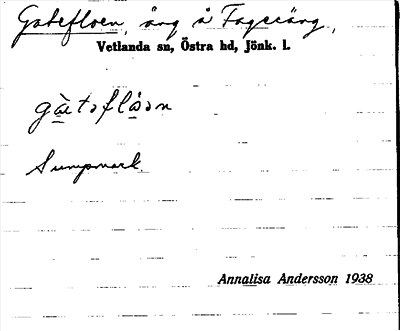 Gatefloen, äng å Fageräng,
Vetlanda sn, Östra hd, Jönk. l.
gàtəflóən
Sumpmark
Annalisa Andersson 1938